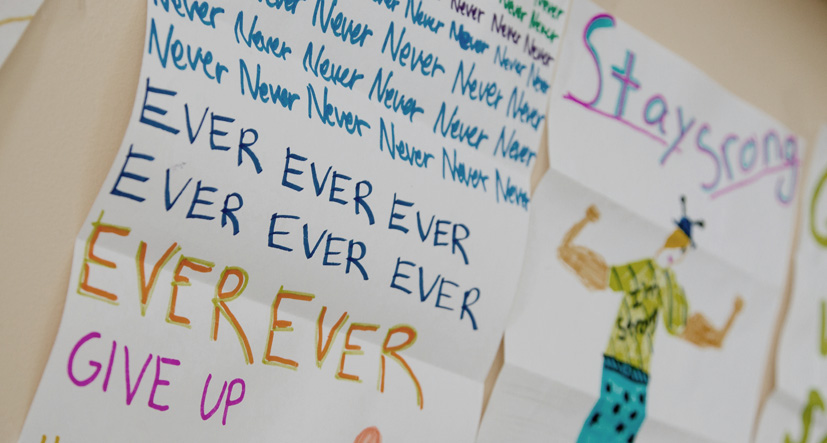 Never
Never Never
Never Never Never
Never Never Never Never
Never Never Never Never Never
Never Never Never Never Never Never
Never Never Never Never Never Never
EVER EVER EVER
EVER EVER EVER
EVER EVER
GIVE UP
Stay srong
I'm
Strong